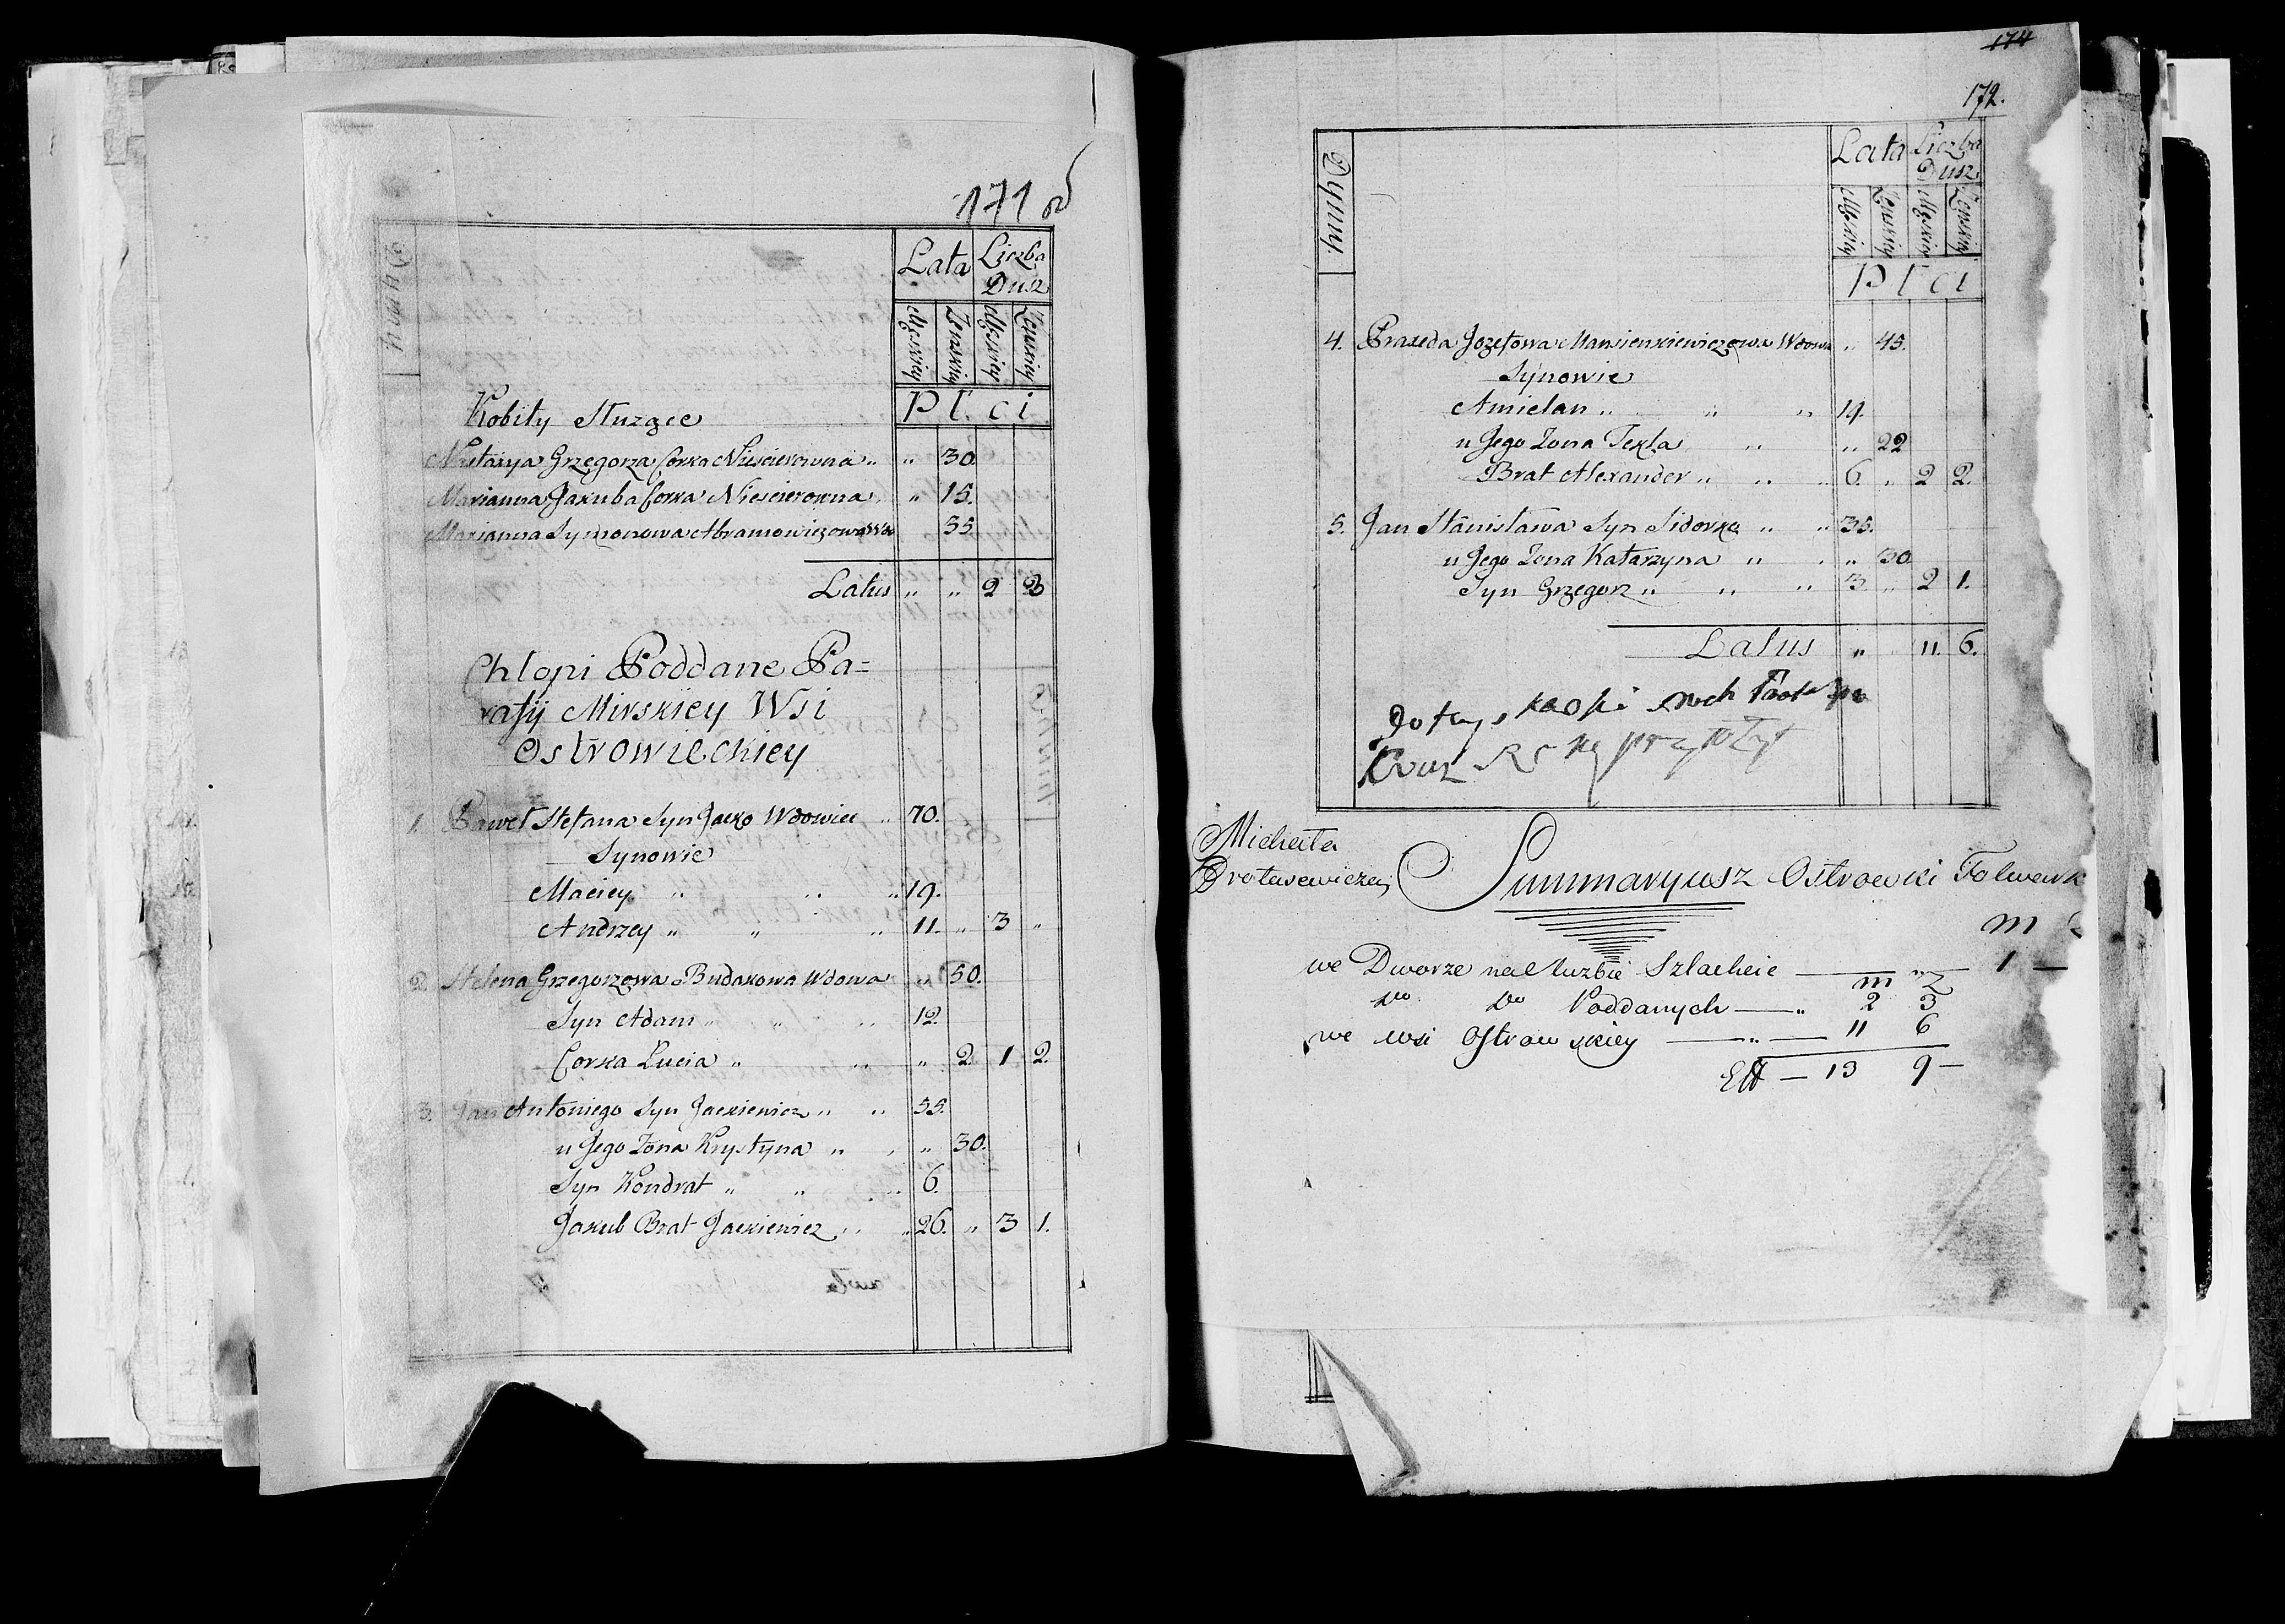 171 d
Dymy
Lata Liczba Dusz
Męskiey Zenskiey Męskiey Zenskiey
Płci
Kobity Służące
Nastazya Grzegorza Corka Nieścierowna „ „ 30.
Marianna Jakuba Corka Nieścierowna „ 15.
Marianna Symonowa Abramowiczowa 35.
Latus „ „ 2 3
Chlopi Poddane Pa=
rafij Mirskiey Wsi
Ostrowieckiey
1. Paweł Stefana Syn Jacko Wdowiec „ 70.
Synowie
Maciey „ „ „ 19.
Andrzey „ „ „ 11. „ 3 „
2. Helena Grzegorzowa Budakowa Wdowa „ 50.
Syn Adam „ „ „ 12.
Corka Lucia „ „ „ 2. 1 2.
3. Jan Antoniego Syn Jackiewicz „ „ 55.
u Jego Zona Krystyna „ „ „ 30.
Syn Kondrat „ „ „ 6.
Jakub Brat Jackiewicz „ „ 26. „ 3 1.
174
172.
Dymy.
Lata Liczba Dusz
Męskiey Zenskiey Męskiey Zenskiey
Płci
4. Praxeda Jozefowa Wdowa „ 45.
Synowie
Amielan „ „ „ 19.
u Jego Zona Tekla „ „ 22
Brat Alexander „ „ „ 6. „ 2 2.
5. Jan Stanisława Syn Sidorka „ „ 35.
u Jego Zona Katarzyna „ „ „ 30.
Syn Grzegorz „ „ „ 3. „ 2 1.
Latus „ „ 11. 6.
Do tey skaski
przyłożył
Michała
Protasewicza
Summaryusz Ostrowki Folwark
m
we Dworze na Służbie Szlachcic — „ — 1 —
m Z
do do Poddanych — „ 2 3
we wsi Ostrowskiey — „ — 11 6
Eff — 13 9 —